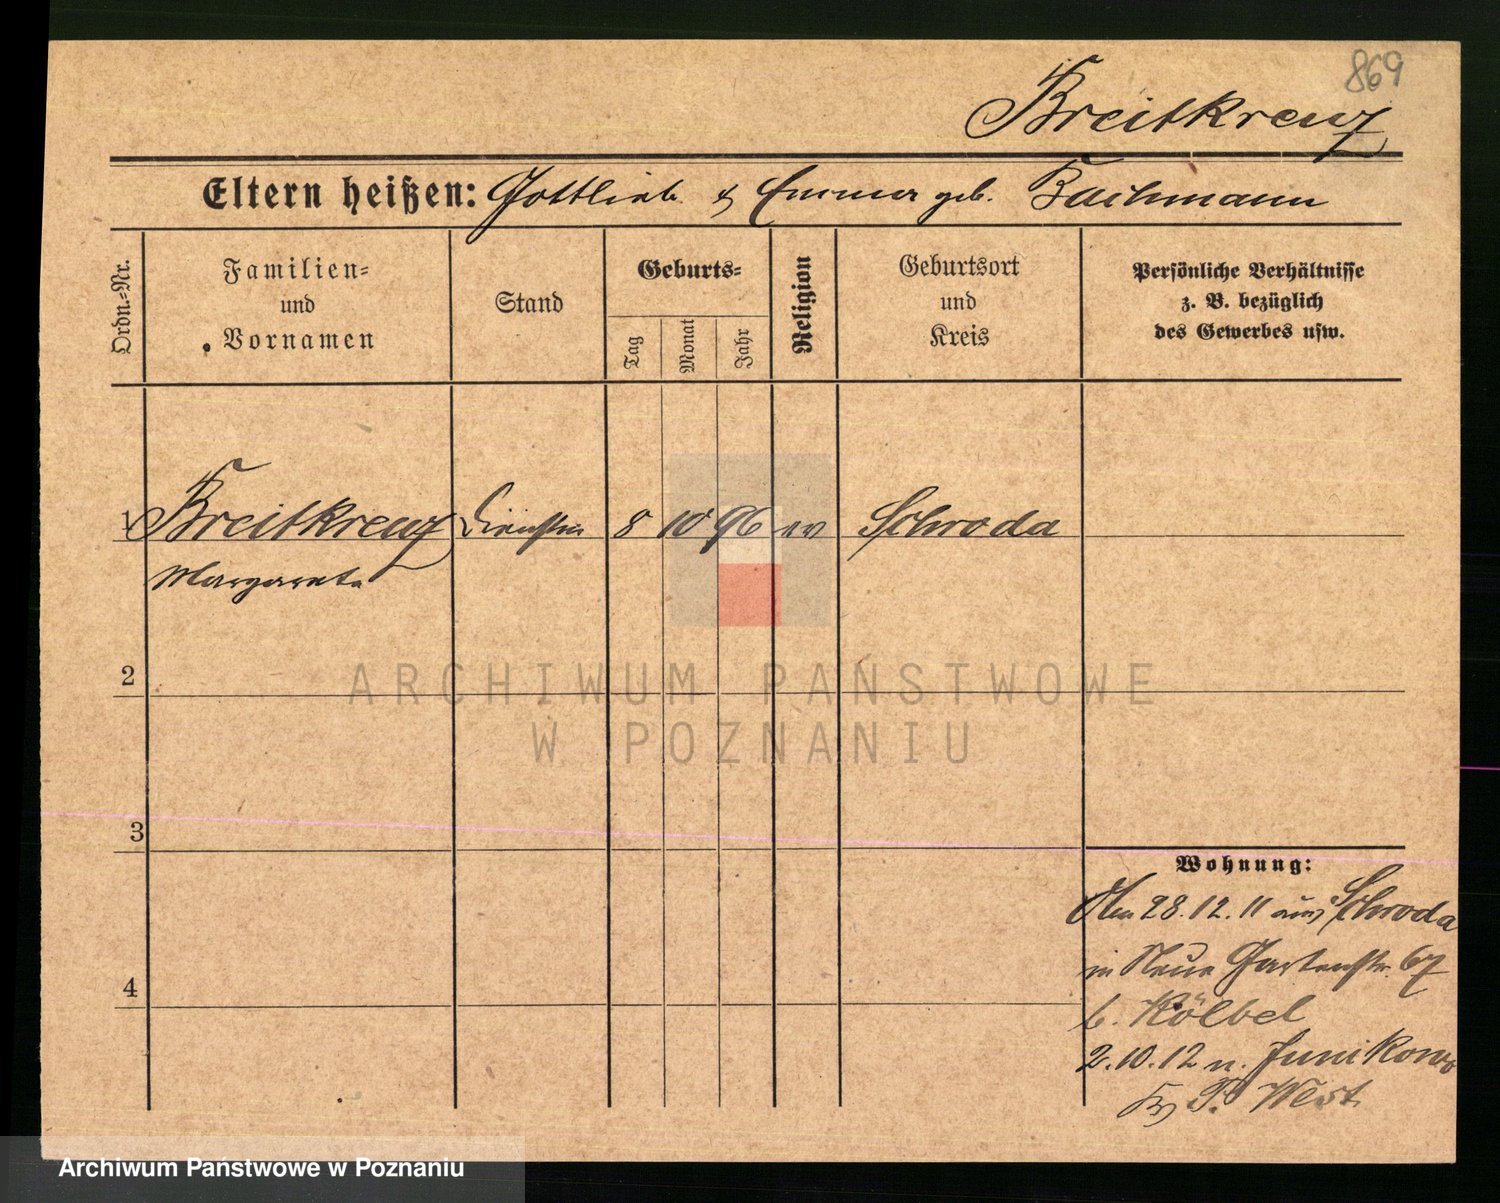 869
Breitkreuz
Eltern heißen: Gottlieb & Emma geb. Bachmann
Ordn.-Nr.
Familien-
und
Vornamen
Stand
Geburts-
Tag
Monat
Jahr
Religion
Geburtsort
und
Kreis
Persönliche Verhältnisse
z. B. bezüglich
des Gewerbes usw.
1 Breitkreuz Dienstm 8 10 96 ev Schroda
Margarete
2
3
4
Wohnung:
28.12.11 aus Schroda
in Neue Gartenstr. 67
b. Kölbel
2.10.12 n. Junikowo
Kr P. West
ARCHIWUM PAŃSTWOWE
W POZNANIU
Archiwum Państwowe w Poznaniu